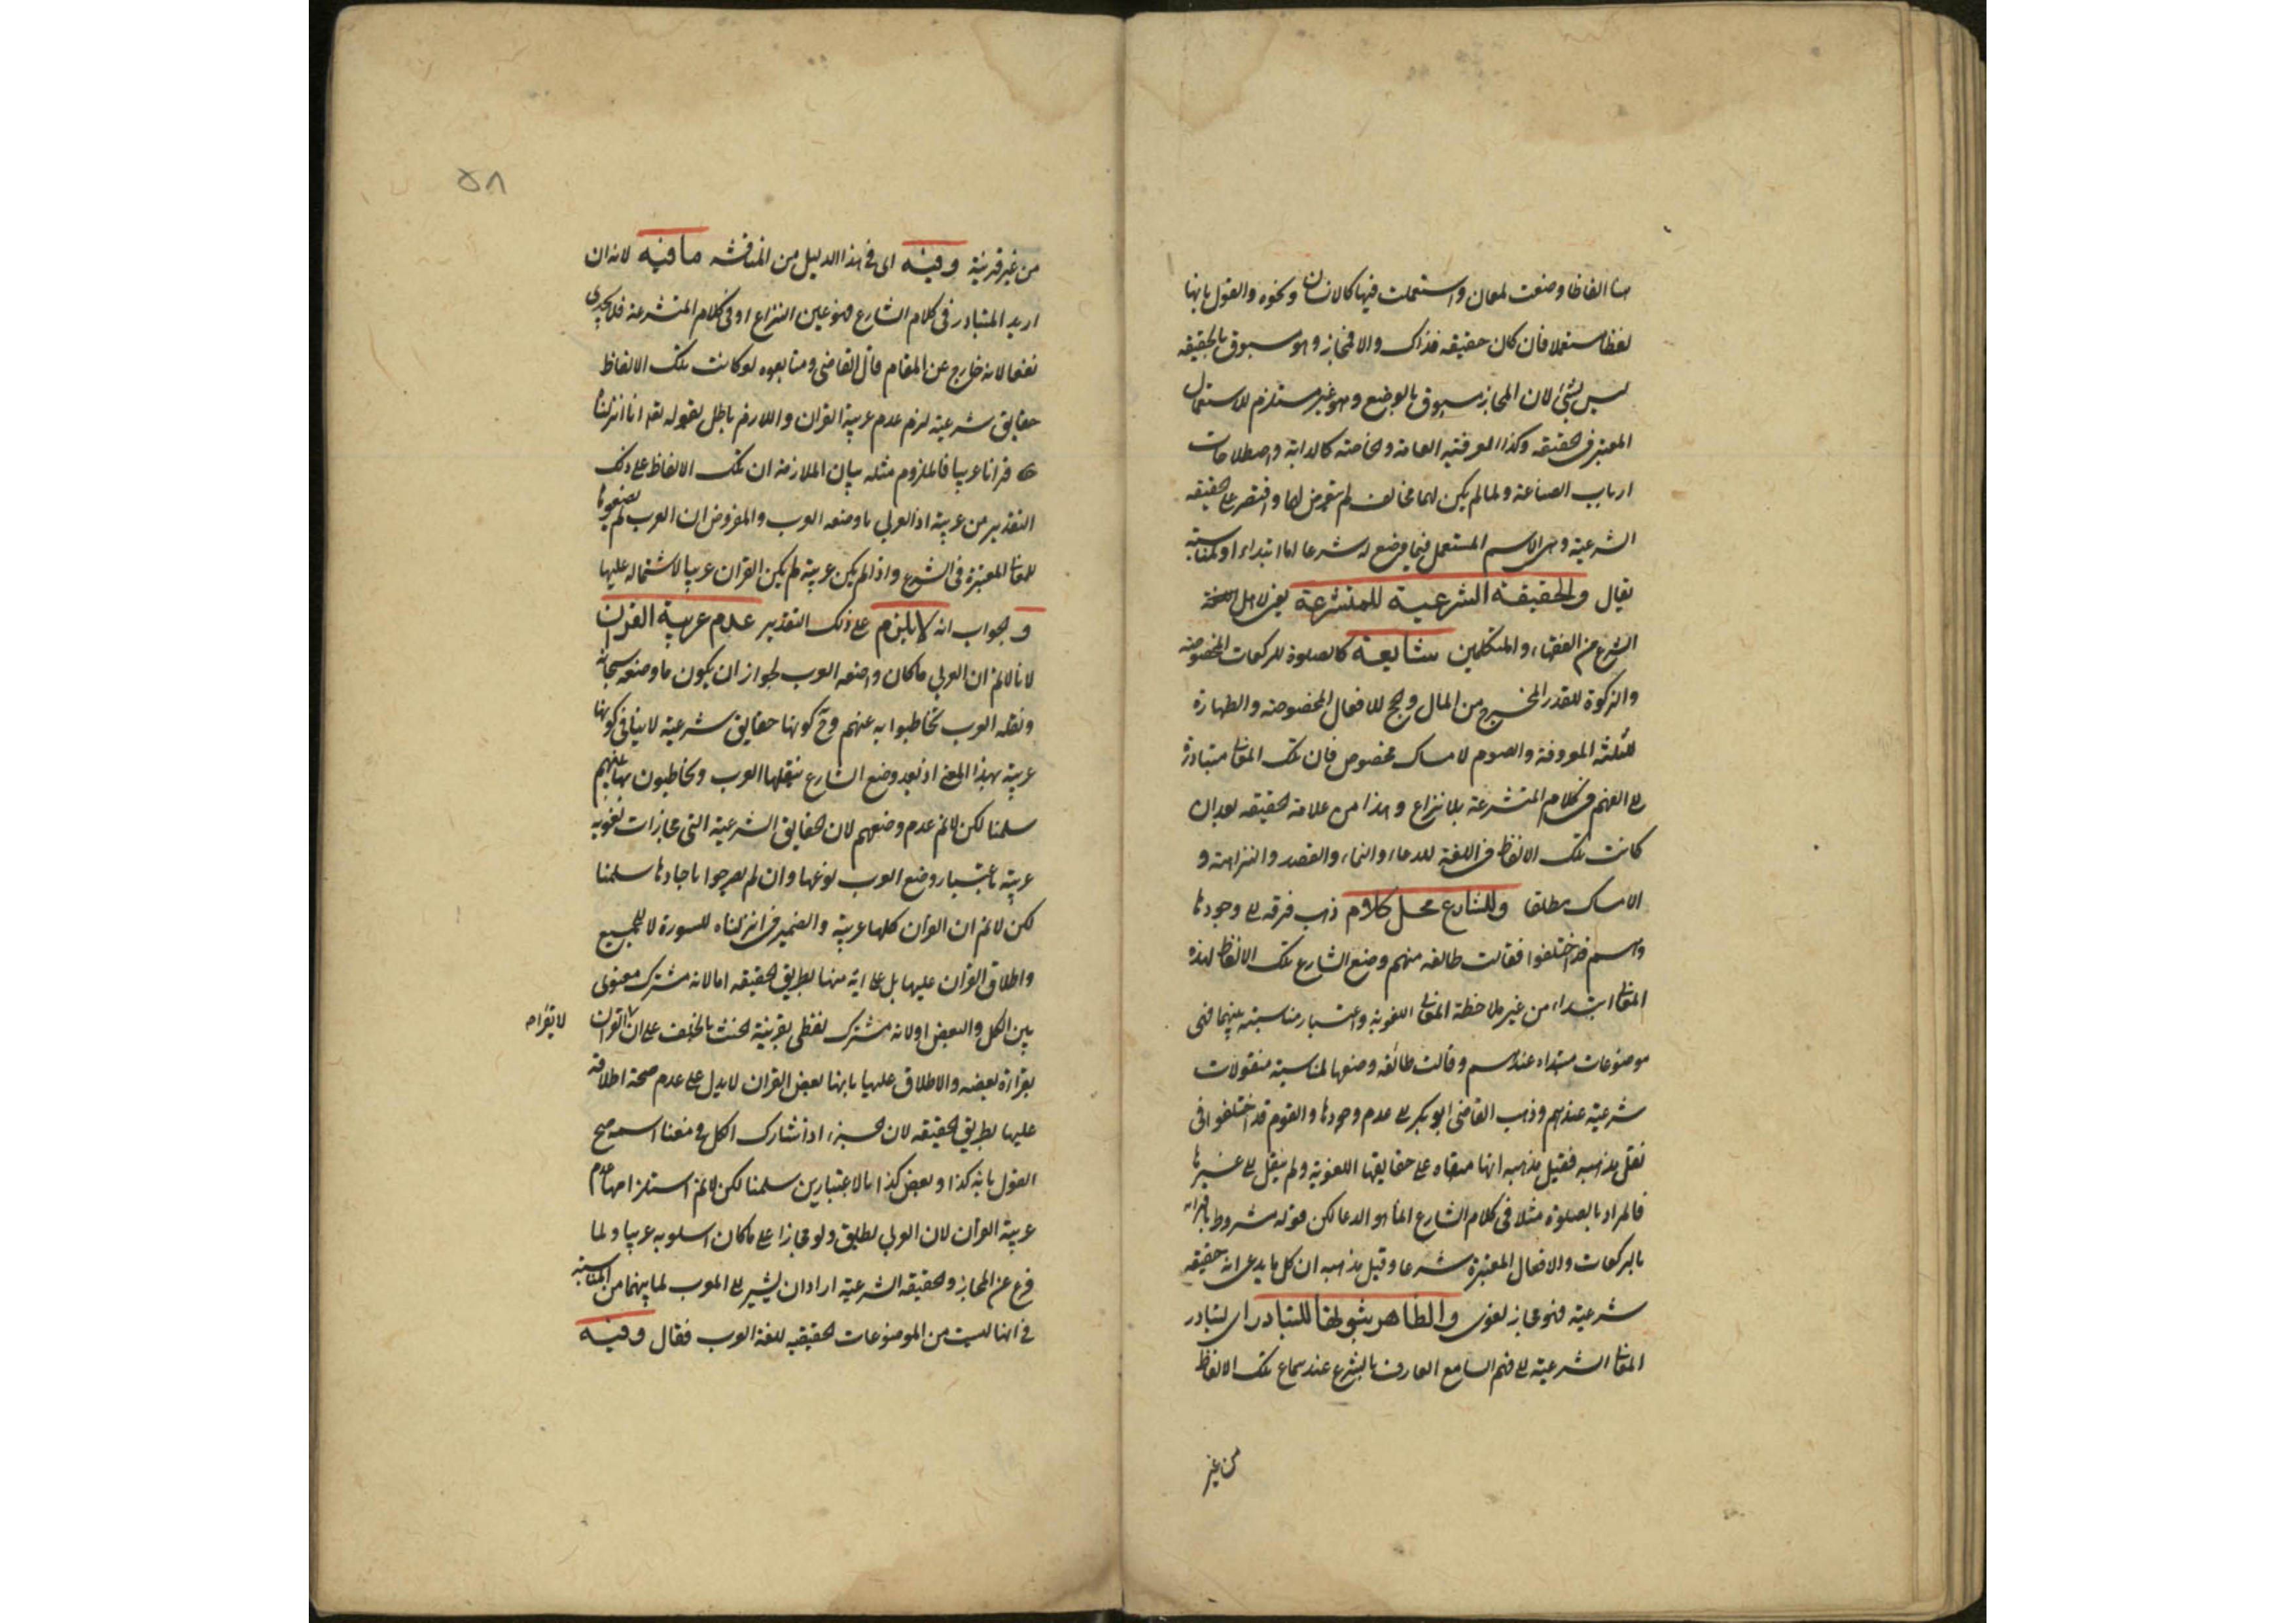 هنا الفاظا وضعت لمعان واستعملت فيها كالانسان ونحوه والقول بانها
لفظا مستعملا فان كان حقيقه فذاك والا فمجاز وهو مسبوق بالحقيقه
ليس بشئ لان المجاز مسبوق بالوضع وهو غير مستلزم للاستعمال
المعتبر فى الحقيقه وكذا العرفيه العامة والخاصه كالدابة واصطلاحات
ارباب الصناعة ولما لم يكن لهما مخالف لم يتعرض لها واقتصر على الحقيقه
الشرعية وهى الاسم المستعمل فيما وضع له شرعا اما ابتداء او لمناسبته
فقال والحقيقة الشرعية للمتشرعة يعنى لاهل
الشرع من الفقهاء والمتكلمين شايعة كالصلوة للركعات المخصوصه
والزكوة للقدر المخرج من المال والحج للافعال المخصوصه والطهارة
للثلثه المعروفة والصوم لامساك مخصوص فان تلك المعانى متبادرة
الى الفهم فى كلام المتشرعة بلا نزاع وهذا من علامة الحقيقه بعد ان
كانت تلك الالفاظ فى اللغة للدعاء والنماء والقصد والنزاهة و
الامساك مطلقا وللشارع محل كلام ذهب فرقه الى وجودها
وهم قد اختلفوا فقالت طائفه منهم وضع الشارع تلك الالفاظ لهذه
المعانى ابتداء من غير ملاحظة المعانى اللغوية واعتبار مناسبته بينهما فهى
موضوعات مبتداء عندهم وقالت طائفه وضعها لمناسبة منقولات
شرعية عندهم وذهب القاضى ابو بكر الى عدم وجودها والقوم قد اختلفوا فى
نقل مذهبه فقيل مذهبه انها مبقاه على حقايقها اللغوية ولم ينقل الى غيرها
فالمراد بالصلوة مثلا فى كلام الشارع انما هو الدعا لكن قبوله مشروط باقترانه
بالركعات والافعال المعتبرة شرعا وقيل مذهبه ان كل ما يدعى انه حقيقه
شرعية فهو مجاز لغوى والظاهر ثبوتها للتبادر اى لتبادر
المعانى الشرعية الى فهم السامع العارف بالشرع عند سماع تلك الالفاظ
من غير
٥٨
من غير قرينة وفيه اى فى هذا الدليل من المناقشه ما فيه لانه ان
اريد المتبادر فى كلام الشارع فهو عين النزاع او فى كلام المتشرعة فلا يجدى
نفعا لانه خارج عن المقام قال القاضى ومتابعوه لو كانت تلك الالفاظ
حقايق شرعية لزم عدم عربية القران واللازم باطل لقوله تعه انا انزلناه
قرانا عربيا فالملزوم مثله بيان الملازمة ان تلك الالفاظ على ذلك
التقدير من عربية اذ العربى ما وضعه العرب والمفروض ان العرب لم يضعوها
للمعانى المعتبرة فى الشرع واذا لم يكن عربية لم يكن القران عربيا لاشتماله عليها
والجواب انه لا يلزم على ذلك التقدير عدم عربية القران
لانا لانم ان العربى ما كان واضعه العرب لجواز ان يكون ما وضعه سبحانه
ونقله العرب تخاطبوا به عنهم وح كونها حقايق شرعية لا ينافى كونها
عربية بهذا المعنى اذ بعد وضع الشارع ينقلها العرب ويخاطبون بها عنهم
سلمنا لكن لانم عدم وضعهم لان الحقايق الشرعية التى مجازات لغوية
عربية باعتبار وضع العرب لنوعها وان لم يصرحوا باحادها سلمنا
لكن لانم ان القران كلها عربية والضمير فى انزلناه للسورة لا للجميع
واطلاق القران عليها بل على اية منها بطريق الحقيقه اما لانه مشترك معنوى
بين الكل والبعض او لانه مشترك لفظى بقرينة الحنث بالحلف على ان القران
لا يقراه
بقراءة بعضه والاطلاق عليها بانها بعض القران لا يدل على عدم صحة اطلاقه
عليها بطريق الحقيقه لان الجزء اذا شارك الكل فى معنا اسمه صح
القول بانه كذا وبعض كذا بالاعتبارين سلمنا لكن لانم استلزامها عدم
عربية القران لان العربى يطلق ولو مجازا على ما كان اسلوبه عربيا ولما
فرع عن المجاز والحقيقه الشرعية اراد ان يشير الى المعرب لما بينهما من المناسبه
فى انها ليست من الموضوعات الحقيقيه للغة العرب فقال وفيه